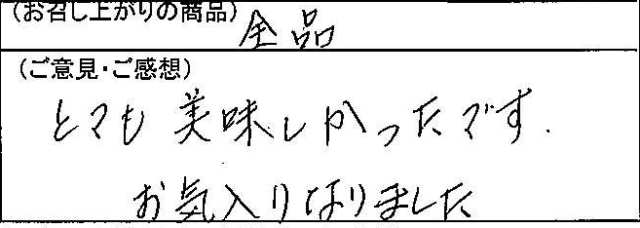 (お召し上がりの商品)
全品
(ご意見・ご感想)
とても美味しかったです.
お気入りなりました